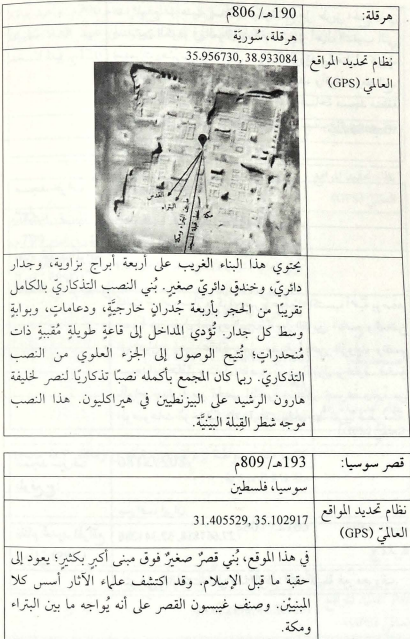 هرقلة: 190هـ/ 806م
هرقلة، سُوريَة
نظام تحديد المواقع 35.956730, 38.933084
العالميّ (GPS)
القدس
البتراء
مكة
يحتوي هذا البناء الغريب على أربعة أبراج بزاوية، وجدار
دائريّ، وخندقٍ دائريّ صغيرٍ. بُني النصب التذكاريّ بالكامل
تقريبًا من الحجر بأربعة جُدران خارجيَّةٍ، ودعاماتٍ، وبوابةٍ
وسط كل جدار. تُؤدي المداخل إلى قاعةٍ طويلةٍ مُقببةٍ ذات
مُنحدراتٍ؛ تُتيح الوصول إلى الجزء العلوي من النصب
التذكاريّ. ربما كان المجمع بأكمله نصبًا تذكاريًا لنصر لخليفة
هارون الرشيد على البيزنطيين في هيراكليون. هذا النصب
موجه شطر القِبلة البيّنيَّة.
قصر سوسيا: 193هـ/ 809م
سوسيا، فلسطين
نظام تحديد المواقع
31.405529, 35.102917
العالميّ (GPS)
في هذا الموقع، بُني قصرٌ صغيرٌ فوق مبنى أكبرٍ بكثيرٍ؛ يعود إلى
حقبة ما قبل الإسلام. وقد اكتشف علماء الآثار أسس كلا
المبنيّين. وصنف غيبسون القصر على أنه يُواجه ما بين البتراء
ومكة.